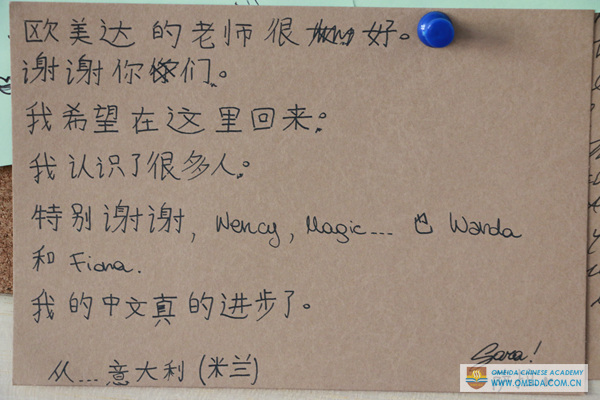 欧美达的老师很好。
谢谢你们。
我希望在这里回来。
我认识了很多人。
特别谢谢, Wency, Magic... Wanda
和 Fiona.
我的中文真的进步了。
Sara!
从...意大利(米兰)
OMEIDA CHINESE ACADEMY
WWW.OMEIDA.COM.CN